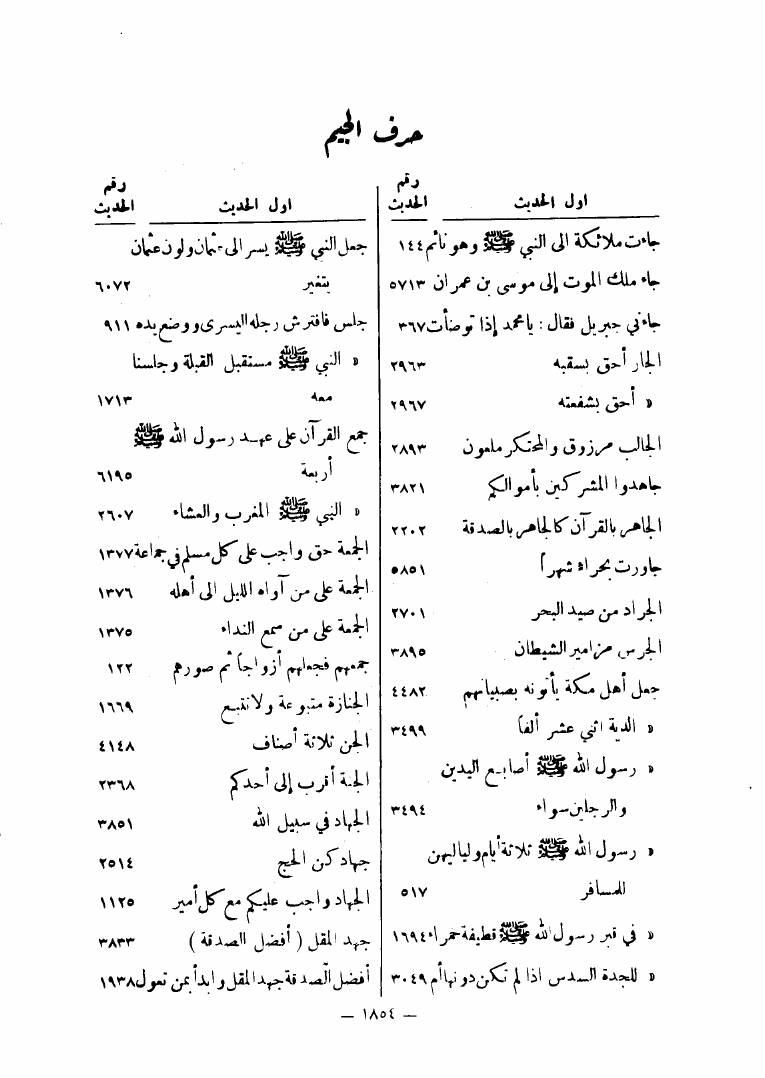 حرف الجيم
اول الحديث رقم الحديث
جاءت ملائكة الى النبي ﷺ وهو نائم ١٤٤
جاء ملك الموت إلى موسى بن عمران ٥٧١٣
جاءني جبريل فقال : يامحمد إذا توضأت ٣٦٧
الجار أحق بسقبه ٢٩٦٣
« أحق بشفعته ٢٩٦٧
الجالب مرزوق والمحتكر ملعون ٢٨٩٣
جاهدوا المشركين بأموالكم ٣٨٢١
الجاهر بالقرآن كالجاهر بالصدقة ٢٢٠٢
جاورت بحراء شهراً ٥٨٥١
الجراد من صيد البحر ٢٧٠١
الجرس مزامير الشيطان ٣٨٩٥
جعل أهل مكة يأتونه بصبيانهم ٤٤٨٢
« الدية اثني عشر ألفاً ٣٤٩٩
« رسول الله ﷺ أصابع اليدين
والرجلين سواء ٣٤٩٤
« رسول الله ﷺ ثلاثة أيام ولياليهن
للمسافر ٥١٧
« في قبر رسول الله ﷺ قطيفة حمراء ١٦٩٤
« للجدة السدس اذا لم تكن دونها أم ٣٠٤٩
اول الحديث رقم الحديث
جعل النبي ﷺ يسر الى عثمان ولون عثمان
يتغير ٦٠٧٢
جلس فافترش رجله اليسرى ووضع يده ٩١١
« النبي ﷺ مستقبل القبلة وجلسنا
معه ١٧١٣
جمع القرآن على عهد رسول الله ﷺ
أربعة ٦١٩٥
« النبي ﷺ المغرب والعشاء ٢٦٠٧
الجمعة حق واجب على كل مسلم في جماعة ١٣٧٧
الجمعة على من آواه الليل الى أهله ١٣٧٦
الجمعة على من سمع النداء ١٣٧٥
جمعهم فجعلهم أزواجاً ثم صورهم ١٢٢
الجنازة متبوعة ولا تتبع ١٦٦٩
الجن ثلاثة أصناف ٤١٤٨
الجنة أقرب إلى أحدكم ٢٣٦٨
الجهاد في سبيل الله ٣٨٥١
جهادكن الحج ٢٥١٤
الجهاد واجب عليكم مع كل أمير ١١٢٥
جهد المقل ( أفضل الصدقة ) ٣٨٣٣
أفضل الصدقة جهد المقل وابدأ بمن تعول ١٩٣٨
— ١٨٥٤ —